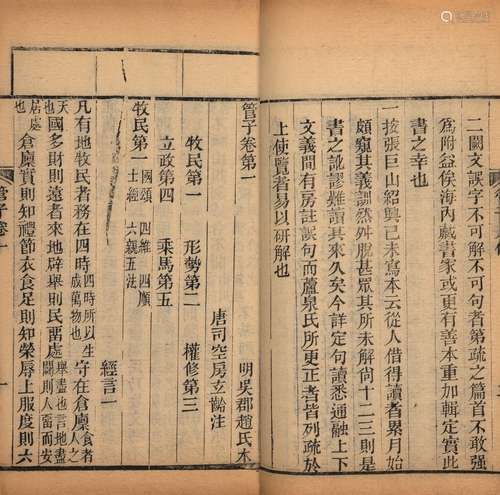 二闕文誤字不可解不可句者第疏之篇首不敢强
為附益俟海內藏書家或更有善本重加輯定實此
書之幸也
一按張巨山紹興己未寫本云從人借得讀者累月始
頗窺其義訓然舛脫甚眾其所未解尚十二三則是
書之訛謬難讀其來久矣今詳定句讀悉通融上下
文義間有房註誤句而蘆泉氏所更正者皆列疏於
上使覽者易以研解也
管子卷第一
明吳郡趙氏本
唐司空房玄齡注
牧民第一 形勢第二 權修第三
立政第四 乘馬第五
牧民第一 國頌 四維 四順 士經 六親五法
經言一
凡有地牧民者務在四時四時所以生成萬物也守在倉廩食者人之
天也國多財則遠者來地辟舉則民留處舉盡也言地盡闢則人留而安
居處也倉廩實則知禮節衣食足則知榮辱上服度則六
管子卷一